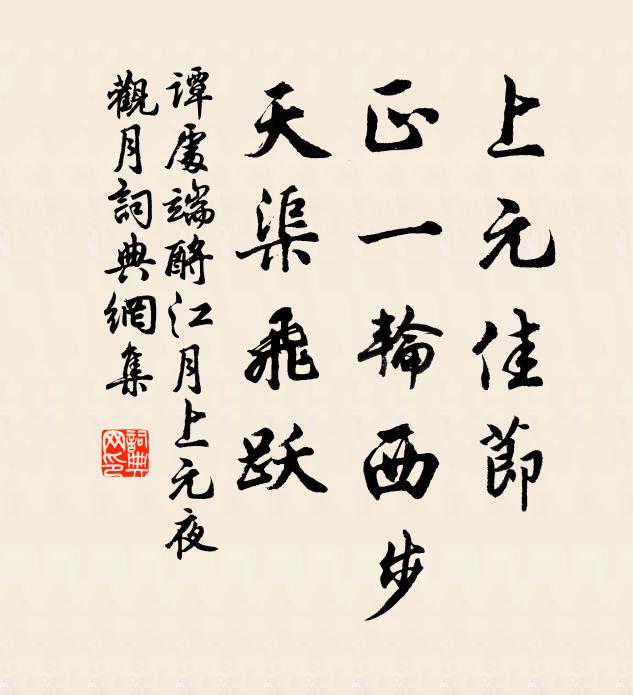 上元佳節
正一輪西步
天渠飛跃
谭處端酹江月上元夜
觀月詞典網集
詞典网印